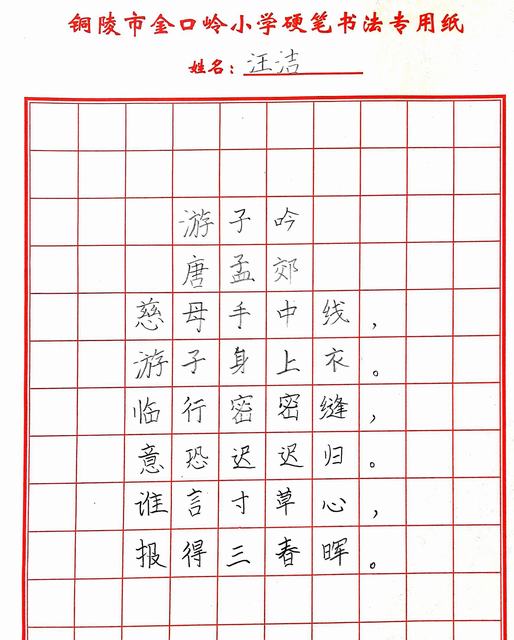 铜陵市金口岭小学硬笔书法专用纸
姓名：汪洁
游子吟
唐孟郊
慈母手中线，
游子身上衣。
临行密密缝，
意恐迟迟归。
谁言寸草心，
报得三春晖。